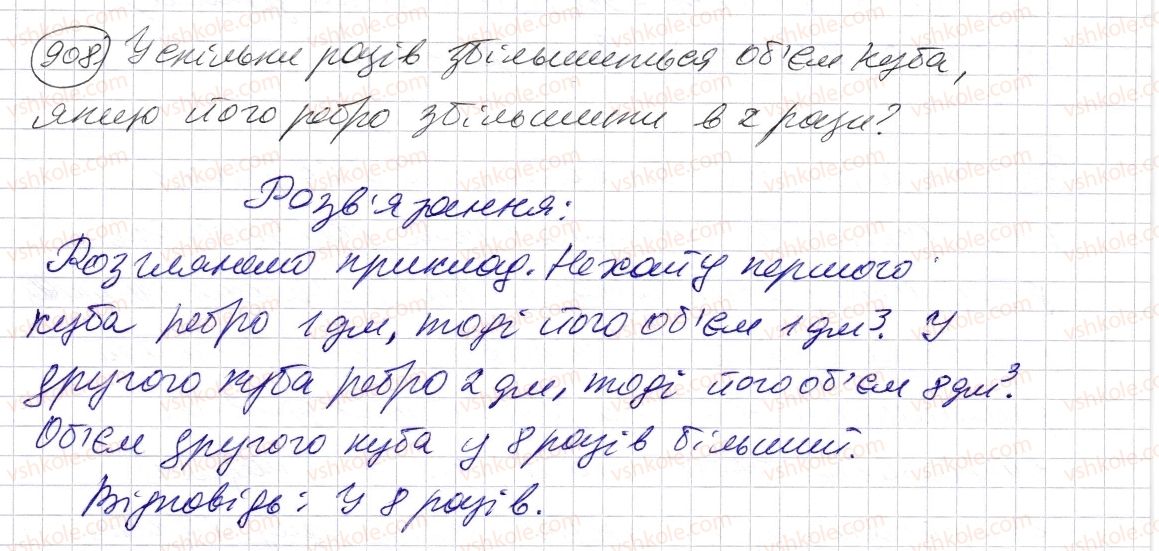 908) У скільки разів збільшиться об'єм куба,
якщо його ребро збільшити в 2 рази?
Розв'язання:
Розглянемо приклад. Нехай у першого
куба ребро 1 дм, тоді його об'єм 1 дм³. У
другого куба ребро 2 дм, тоді його об'єм 8 дм³.
Об'єм другого куба у 8 разів більший.
Відповідь: У 8 разів.